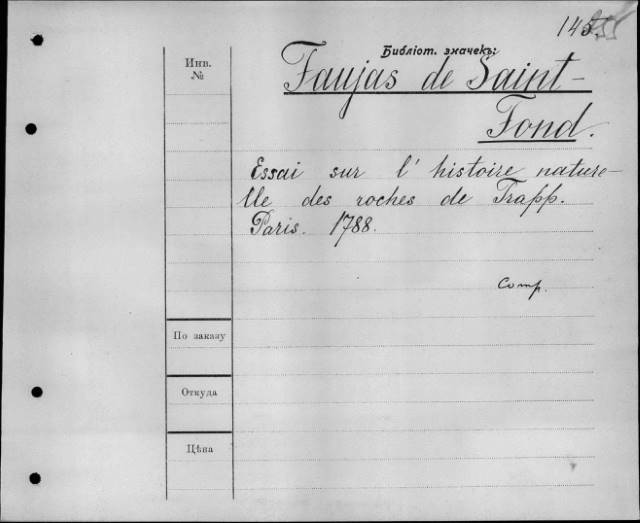 Библіот. значекъ:
Инв.
№
Faujas de Saint-
Fond.
Essai sur l'histoire nature-
lle des roches de Trapp.
Paris. 1788.
Comp.
По заказу
Откуда
Цѣна